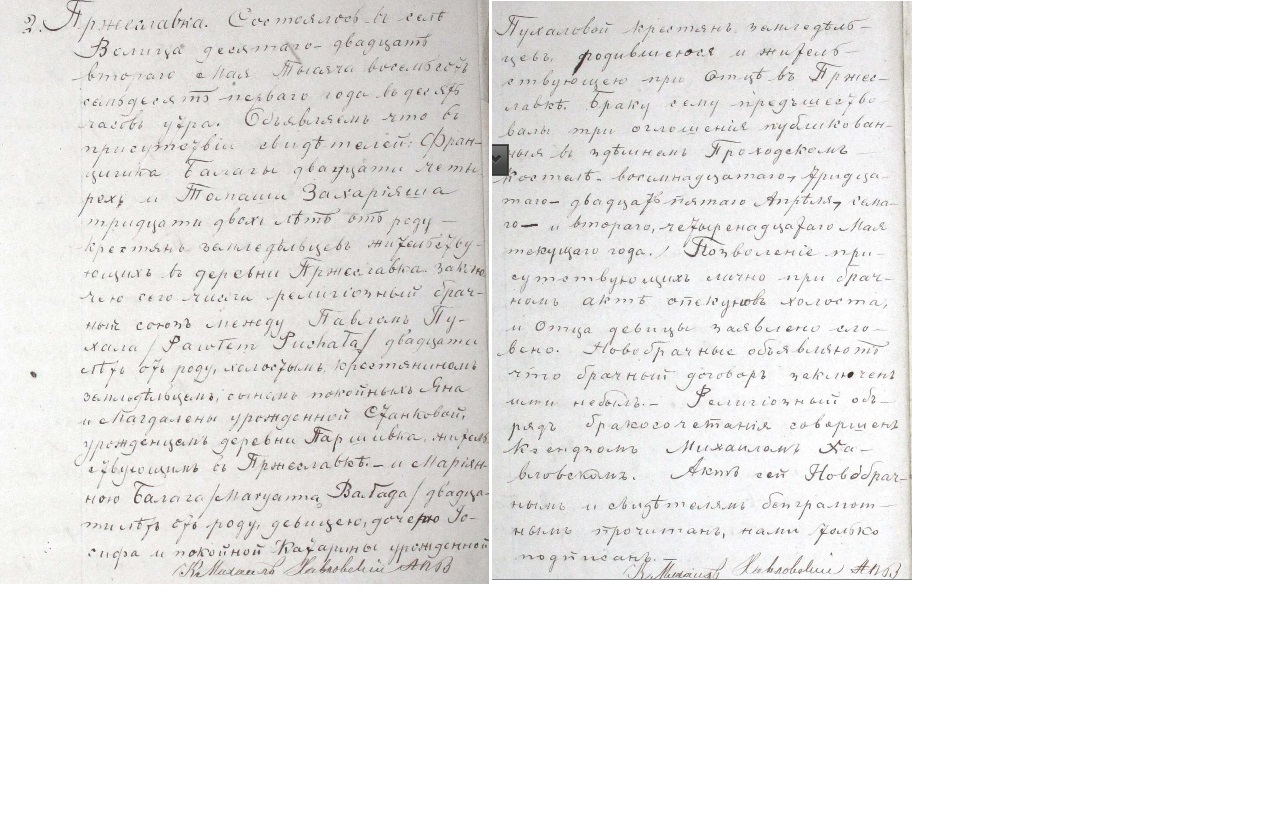 2. Пржеславка. Состоялось въ селѣ
Велицѣ десятаго – двадцать
втораго Мая Тысяча восемьсотъ
семьдесятъ перваго года въ десять
часовъ утра. Объявляемъ что въ
присутствіи свидѣтелей: Фран-
цишка Балагы двадцати четы-
рехъ и Томаша Захаріяша
тридцати двохъ лѣтъ отъ роду –
крестянъ земледѣльцевъ жительству-
ющихъ въ деревни Пржеславка. заклю-
чено сего числа религіозный брач-
ный союзъ между Павломъ Пу-
хала / Pawłem Puchała / двадцати
лѣтъ отъ роду, холостымъ, крестяниномъ
земледѣльцемъ, сыномъ покойныхъ Яна
и Магдалены урожденной Станковой,
урожденцемъ деревни Паршивка, житель-
ствующимъ въ Пржеславкѣ. – и Маріян-
ною Балага / Maryanną Bałagą / двадца-
ти лѣтъ отъ роду, девицею, дочерью Іо-
сифа и покойной Катарины урожденной
Кс. Михаилъ Хавловскій АПВ
Пухаловой крестянъ земледѣль-
цевъ, родившеюся и житель-
ствующею при Отцѣ въ Пржес-
лавкѣ. Браку сему предъшество-
валы три оглошенія публикован-
ныя въ здѣшнемъ Проходскомъ
Костелѣ – восемнадцатаго, тридца-
таго – двадцать пятаго Апрѣля, седма-
го – и втораго, четыренадцатаго Мая
текущаго года. / Позволеніе при-
сутствующихъ лично при брач-
номъ актѣ опекуновъ холоста,
и Отца девицы заявлено сло-
весно. Новобрачные объявляютъ
что брачный договоръ заключенъ
ими небылъ. – Религіозный об-
рядъ бракосочетанія совершенъ
Ксендзомъ Михаиломъ Ха-
вловскомъ. Актъ сей Новобрач-
нымъ и свидѣтелямъ безграмот-
нымъ прочитанъ, нами только
подписанъ. –
Кс. Михаилъ Хавловскій АПВ